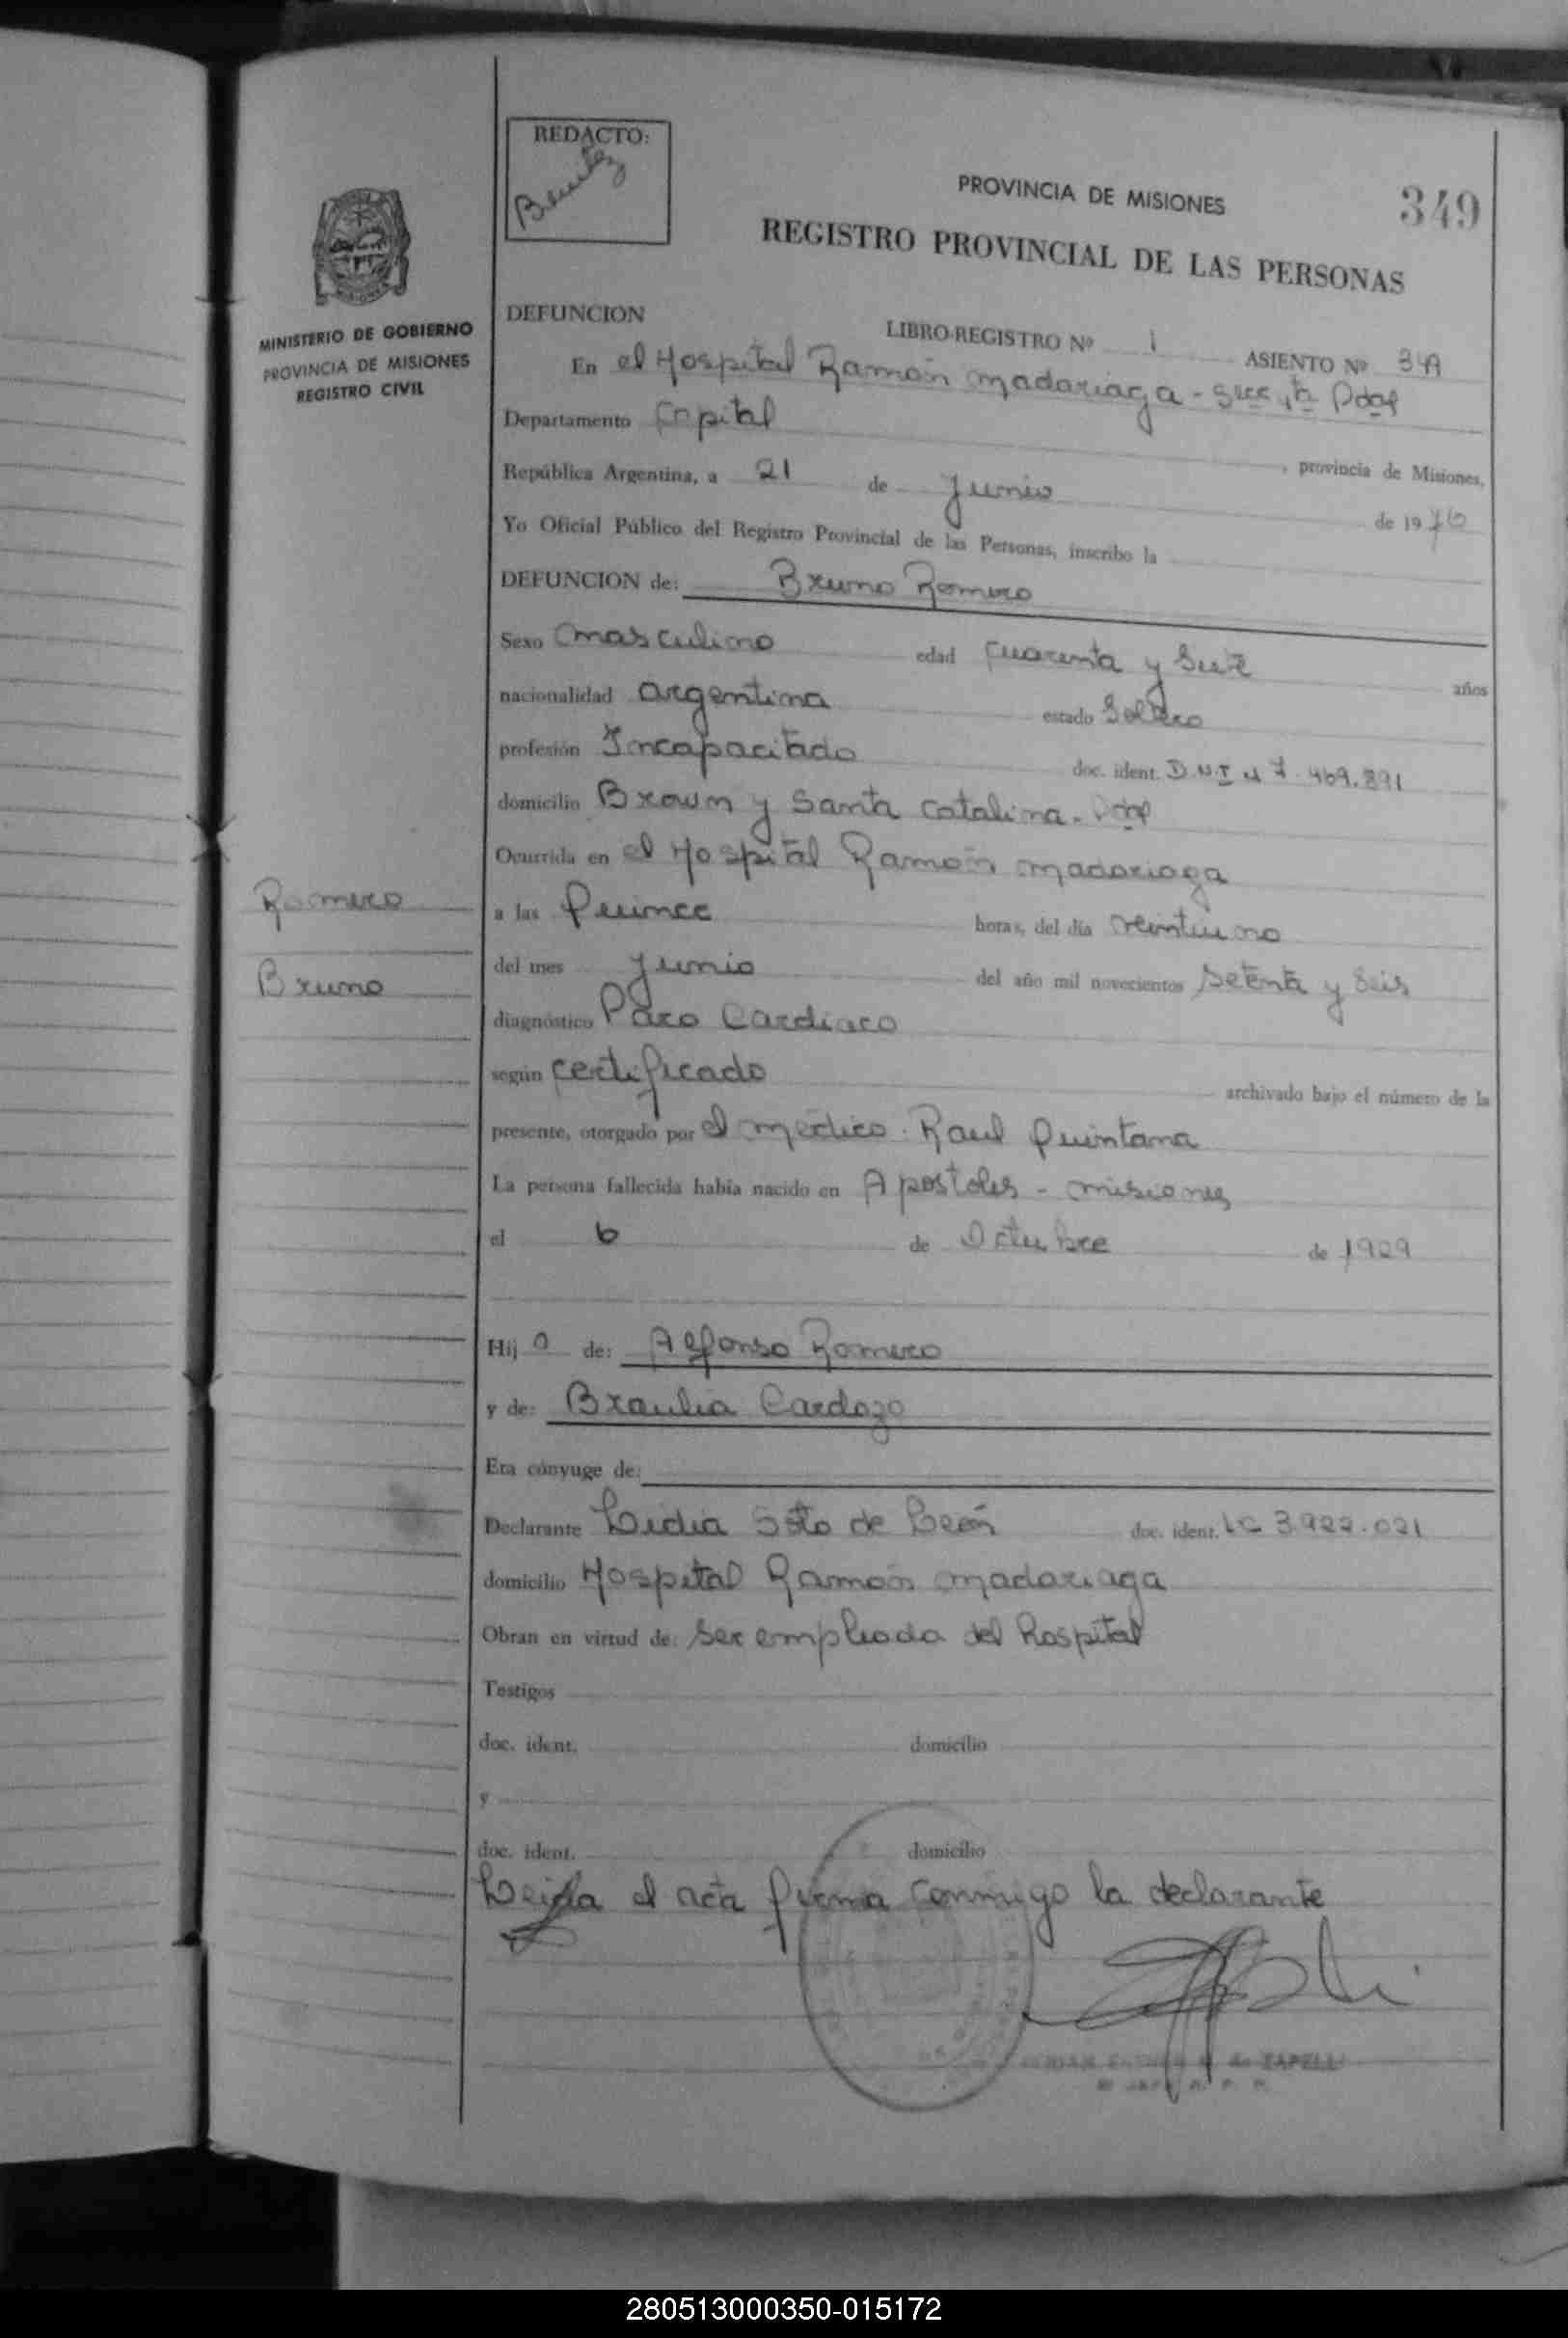 REDACTO:
Benitez
PROVINCIA DE MISIONES
349
REGISTRO PROVINCIAL DE LAS PERSONAS
MINISTERIO DE GOBIERNO
PROVINCIA DE MISIONES
REGISTRO CIVIL
DEFUNCION
LIBRO-REGISTRO Nº 1 ASIENTO Nº
En el Hospital Ramón Madariaga - Secc 1ta Pdas
Departamento Capital , provincia de Misiones,
República Argentina, a 21 de Junio de 1976
Yo Oficial Público del Registro Provincial de las Personas, inscribo la
DEFUNCION de: Bruno Romero
Sexo Masculino edad Cuarenta y Seis años
nacionalidad argentina estado Soltero
profesión Incapacitado doc. ident. D.N.I. N 7.469.891
domicilio Brown y Santa Catalina. Pdas
Ocurrida en el Hospital Ramón Madariaga
a las Quince horas, del día veintiuno
del mes Junio del año mil novecientos Setenta y Seis
diagnóstico Paro Cardiaco
según certificado archivado bajo el número de la
presente, otorgado por el médico. Raul Quintana
La persona fallecida había nacido en Apostoles - Misiones
el 6 de Octubre de 1929
Hijo de: Alfonso Romero
y de: Braulia Cardozo
Era cónyuge de:
Declarante Lidia Soto de León doc. ident. LC 3.922.021
domicilio Hospital Ramón Madariaga
Obran en virtud de: ser empleada del Hospital
Testigos
doc. ident. domicilio
y
doc. ident. domicilio
Leida el acta firma conmigo la declarante
Romero
Bruno
280513000350-015172